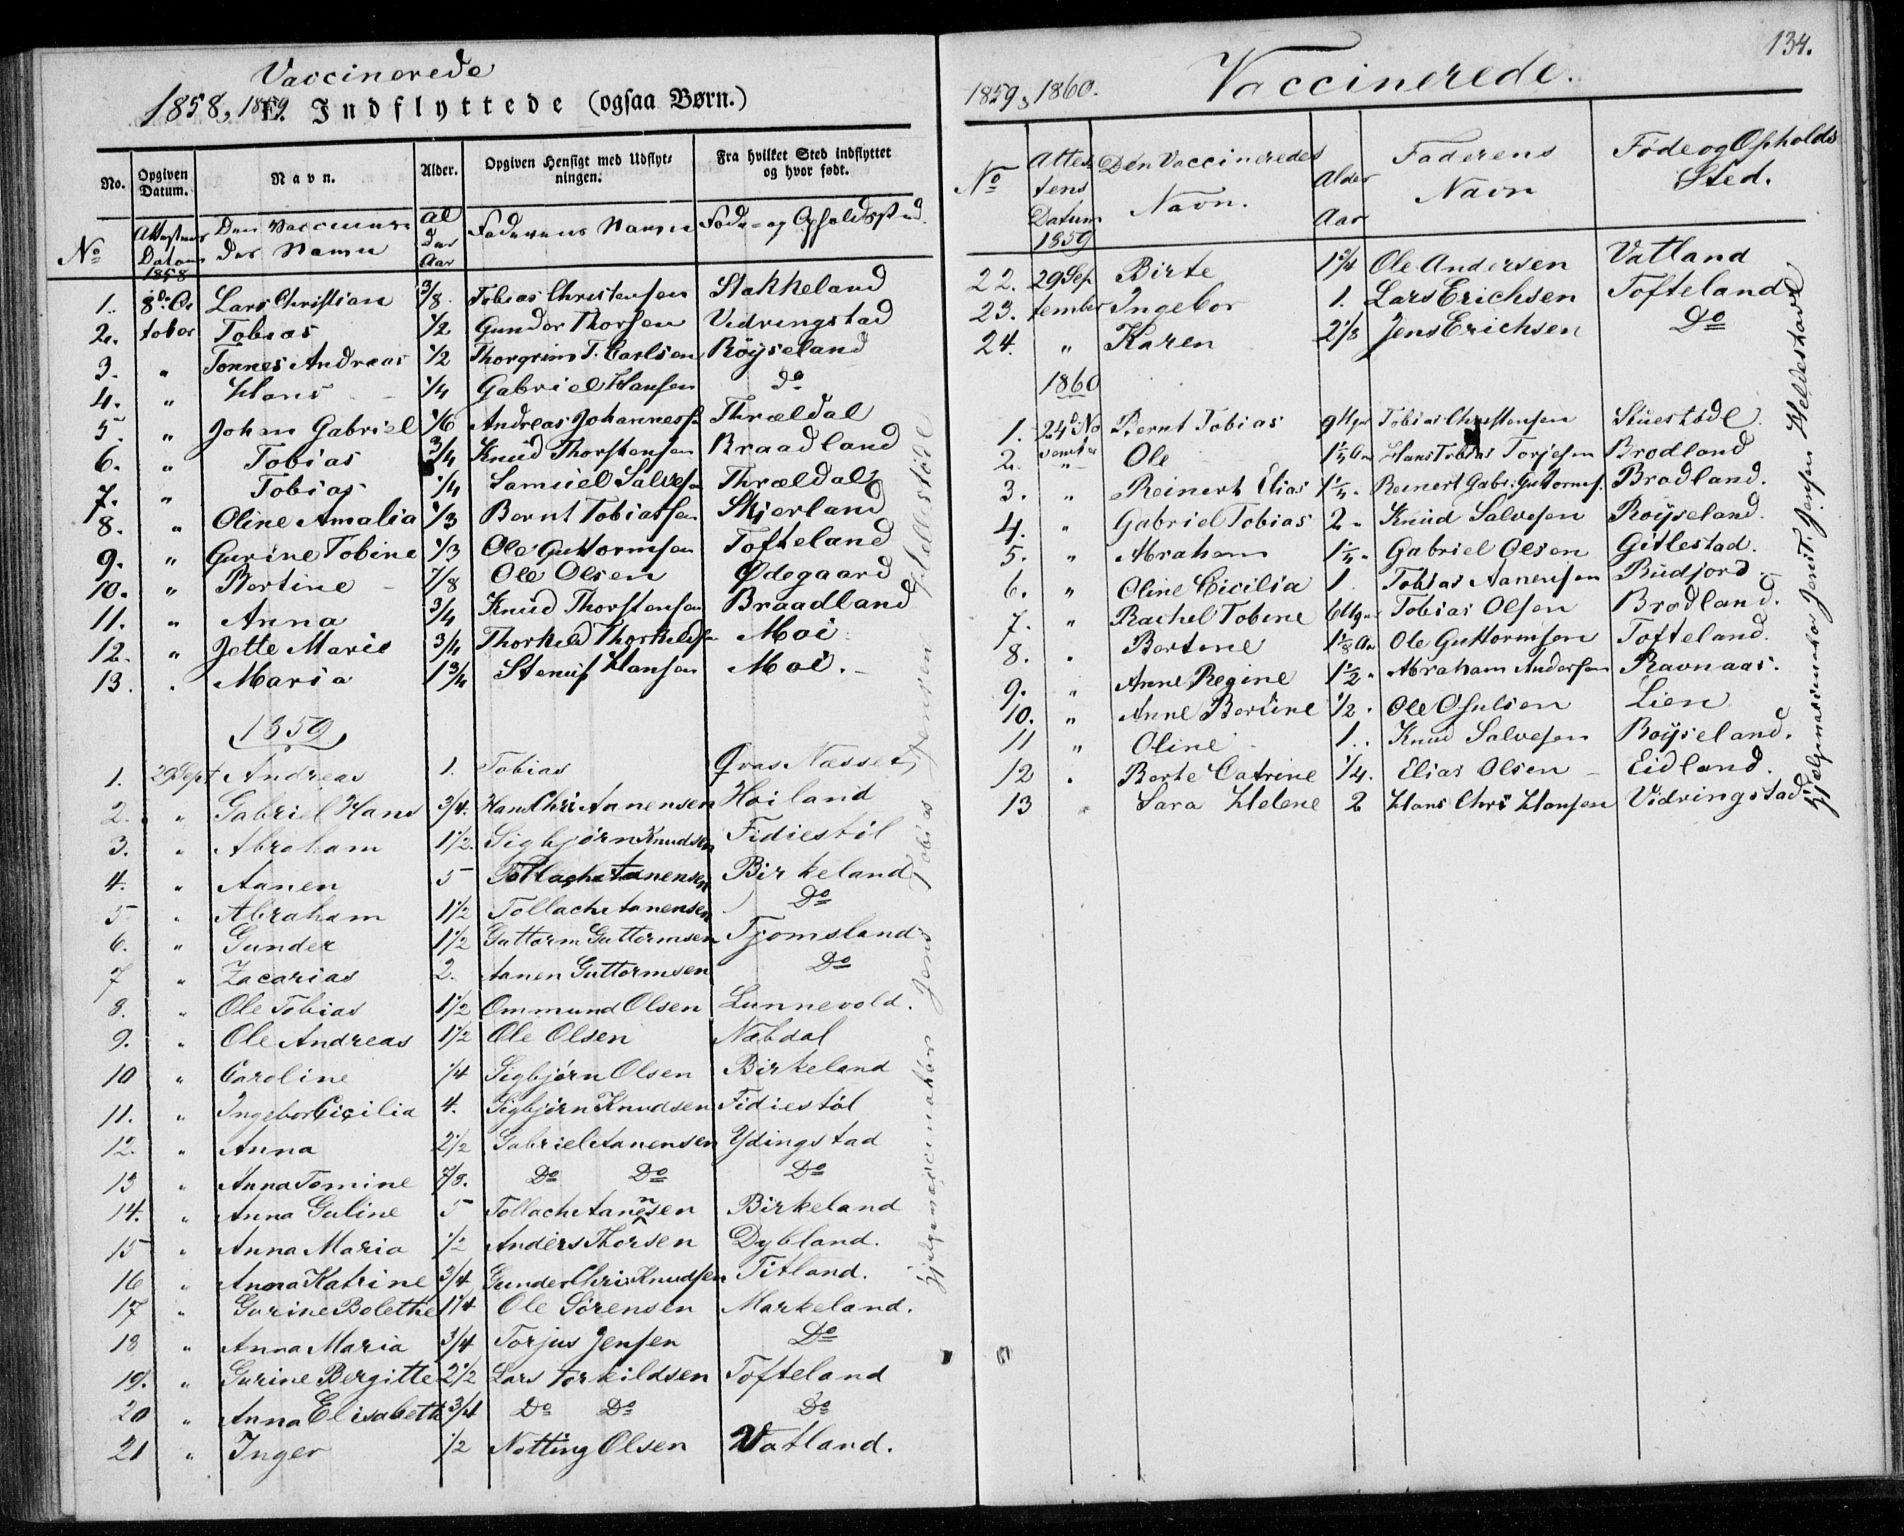 Vaccinerede
1858, 1859. E. Indflyttede (ogsaa Børn.)
No. Opgiven Datum. Navn. Alder. Opgiven Hensigt med Udflyt- ningen. Fra hvilket Sted indflyttet og hvor født.
No Attestens Datum 1858 Den Vaccinere des Navn Al der Aar Faderens Navn Føde- og Opholdssted.
1. 8de Oc Lars Christian 3/8. Tobias Christensen Stakkeland
2. tober Tobias 1/2 Gunder Thorsen Vidringstad
3. " Tønnes Andreas 1/2 Thorgrim T. Carlsen Röyseland
4. " Hans 1/4 Gabriel Hansen do
5. " Johan Gabriel 1/6 Andreas Johanness. Thrældal
6. " Tobias 3/4 Knud Thorstensen Braadland
7. " Tobias 1/4 Samuel Salves. Thrældal
8. " Oline Amalia 1/3 Bernt Tobiassen Skjerland
9. " Gurine Tobine 1/3 Ole Guttormsen Tofteland
10. " Bertine 7/8 Ole Olsen Ødegaard
11. " Anna 3/4 Knud Thorstensen Braadland
12. " Jette Marie 3/4 Thorkild Thorkilds. Moi
13. " Maria 1 3/4 Hansen Moi.
1859
1. 29 Sept Andreas 1. Tobias Qvas Næsset
2. " Gabriel Hans 3/4. Hans Chri Aanensen Hoiland
3. " Abraham 1 1/2. Sigbjørn Knudsen Fidiestöl
4. " Aanen 5 Tollach Aanensen Birkeland
5 " Abraham 1 1/2 Tollach Aanensen Do
6. " Gunder 1 1/2 Guttorm Guttormsen Tjomsland
7 " Zacarias 2. Aanen Guttormsen Do
8. " Ole Tobias 1 1/2 Ommund Olsen Lunnevold.
9. " Ole Andreas 1 1/2 Ole Olsen Næbdal
10 " Caroline 1/4 Sigbjörn Olsen Birkeland
11. " Ingebor Cicilia 4. Sigbjörn Knudsen Fidiestöl
12. " Anna 2 1/2 Gabriel Aanensen Ydingstad
13 " Anna Tomine 7/8. Do Do Do
14. " Anna Guline 5 Tollach Aanensen Birkeland
15 " Anna Maria 1/2 Anders Thorsen Dybland.
16 " Anna Katrine 3/4 Gunder Chris Knudsen Titland.
17 " Gurine Bolethe 1 1/4 Ole Sörensen Markeland.
18 " Anna Maria 3/4 Torjus Jensen Do
19. " Gurine Bergitte 2 1/2 Lars Torkildsen Tofteland
20 " Anna Elisabeth 3/4 Do Do Do
21 " Inger 1/2 Notting Olsen Vatland.
Hjelpevaccinatör Jens Tobias Jensen
134.
1859 & 1860. Vaccinerede.
No Attes tens Datum 1859 Den Vaccineredes Navn. Alder Aar Faderens Navn Føde og Opholds Sted.
22. 29 Sep Birte 1 3/4 Ole Andersen Vatland
23. tember Ingebor 1. Lars Erichsen Tofteland
24. " Karen 2 1/3 Jens Erichsen Do
1860
1. 24de No Bernt Tobias 9 Mgr Tobias Christensen Stuestöl
2. vember " Ole 1 1/4 Aar Hans Tobias Torjesen Brodland
3. " Reinert Elias 1 1/4 " Reinert Gabr. Guttorms. Bradland.
4. " Gabriel Tobias 2 " Knud Salvesen Röyseland.
5. " Abraham 1 1/4 " Gabriel Olsen Gitlestad.
6. " Oline Cicilia 1 Tobias Aanensen Rudjord
7. " Rachel Tobine 6 Mgr Tobias Olsen Brodland.
8. " Bertine 1 1/8 Aar Ole Guttormsen Tofteland.
9. " Anne Regine 1 1/2 " Abraham Andersen Ravnaas.
10. " Anne Bertine 1/2 " Ole Osulsen Lien
11 " Oline 1. " Knud Salvesen Röyseland.
12 " Berte Catrine 1/4. Elias Olsen Eidland.
13 " Sara Helene 2 Hans Chr. Hansen Vidringstad
Hjelpevaccinatör Jens T. Jensen